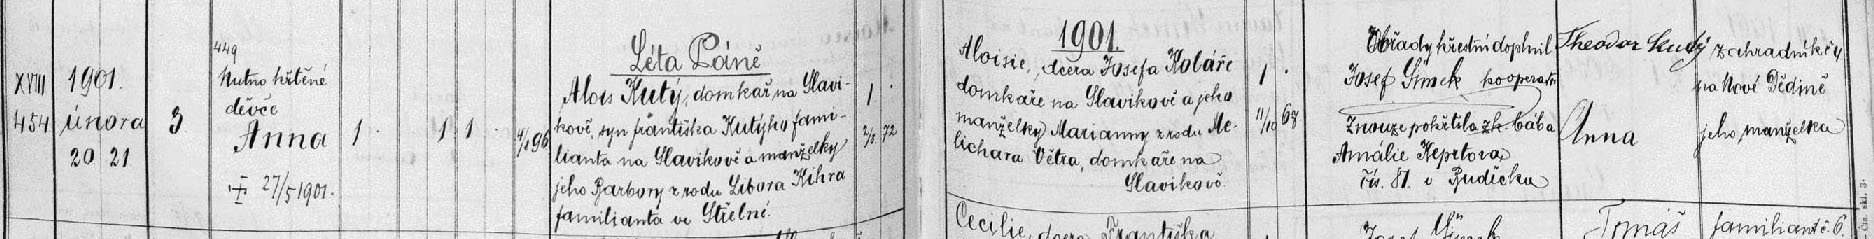 Léta Páně
1901.
XVIII
454
1901.
února
20 21
3
449
Nutno křtěné
děvče
Anna
27/5 1901.
1
1 1
96
Alois Kutý, domkař na Slavi-
kově, syn Františka Kutýho fami-
lianta na Slavikově a manželky
jeho Barbory z rodu Libora Kihra
familianta ve Střelné.
1
2/8 72
Aloisie, dcera Josefa Koláře
domkaře na Slavikově a jeho
manželky Marianny z rodu Me-
lichara Větra, domkaře na
Slavikově
1
11/10 68
Obřady křestní doplnil
Josef Šimek kooperator
Z nouze pokřtila zk. bába
Amálie
čís. 81. v Budíčku
Theodor Kutý
Anna
zahradník č. 4
na Nové Dědině
jeho manželka
Cecilie, dcera Františka
Josef Šimek
Tomáš
familiant č. 6.